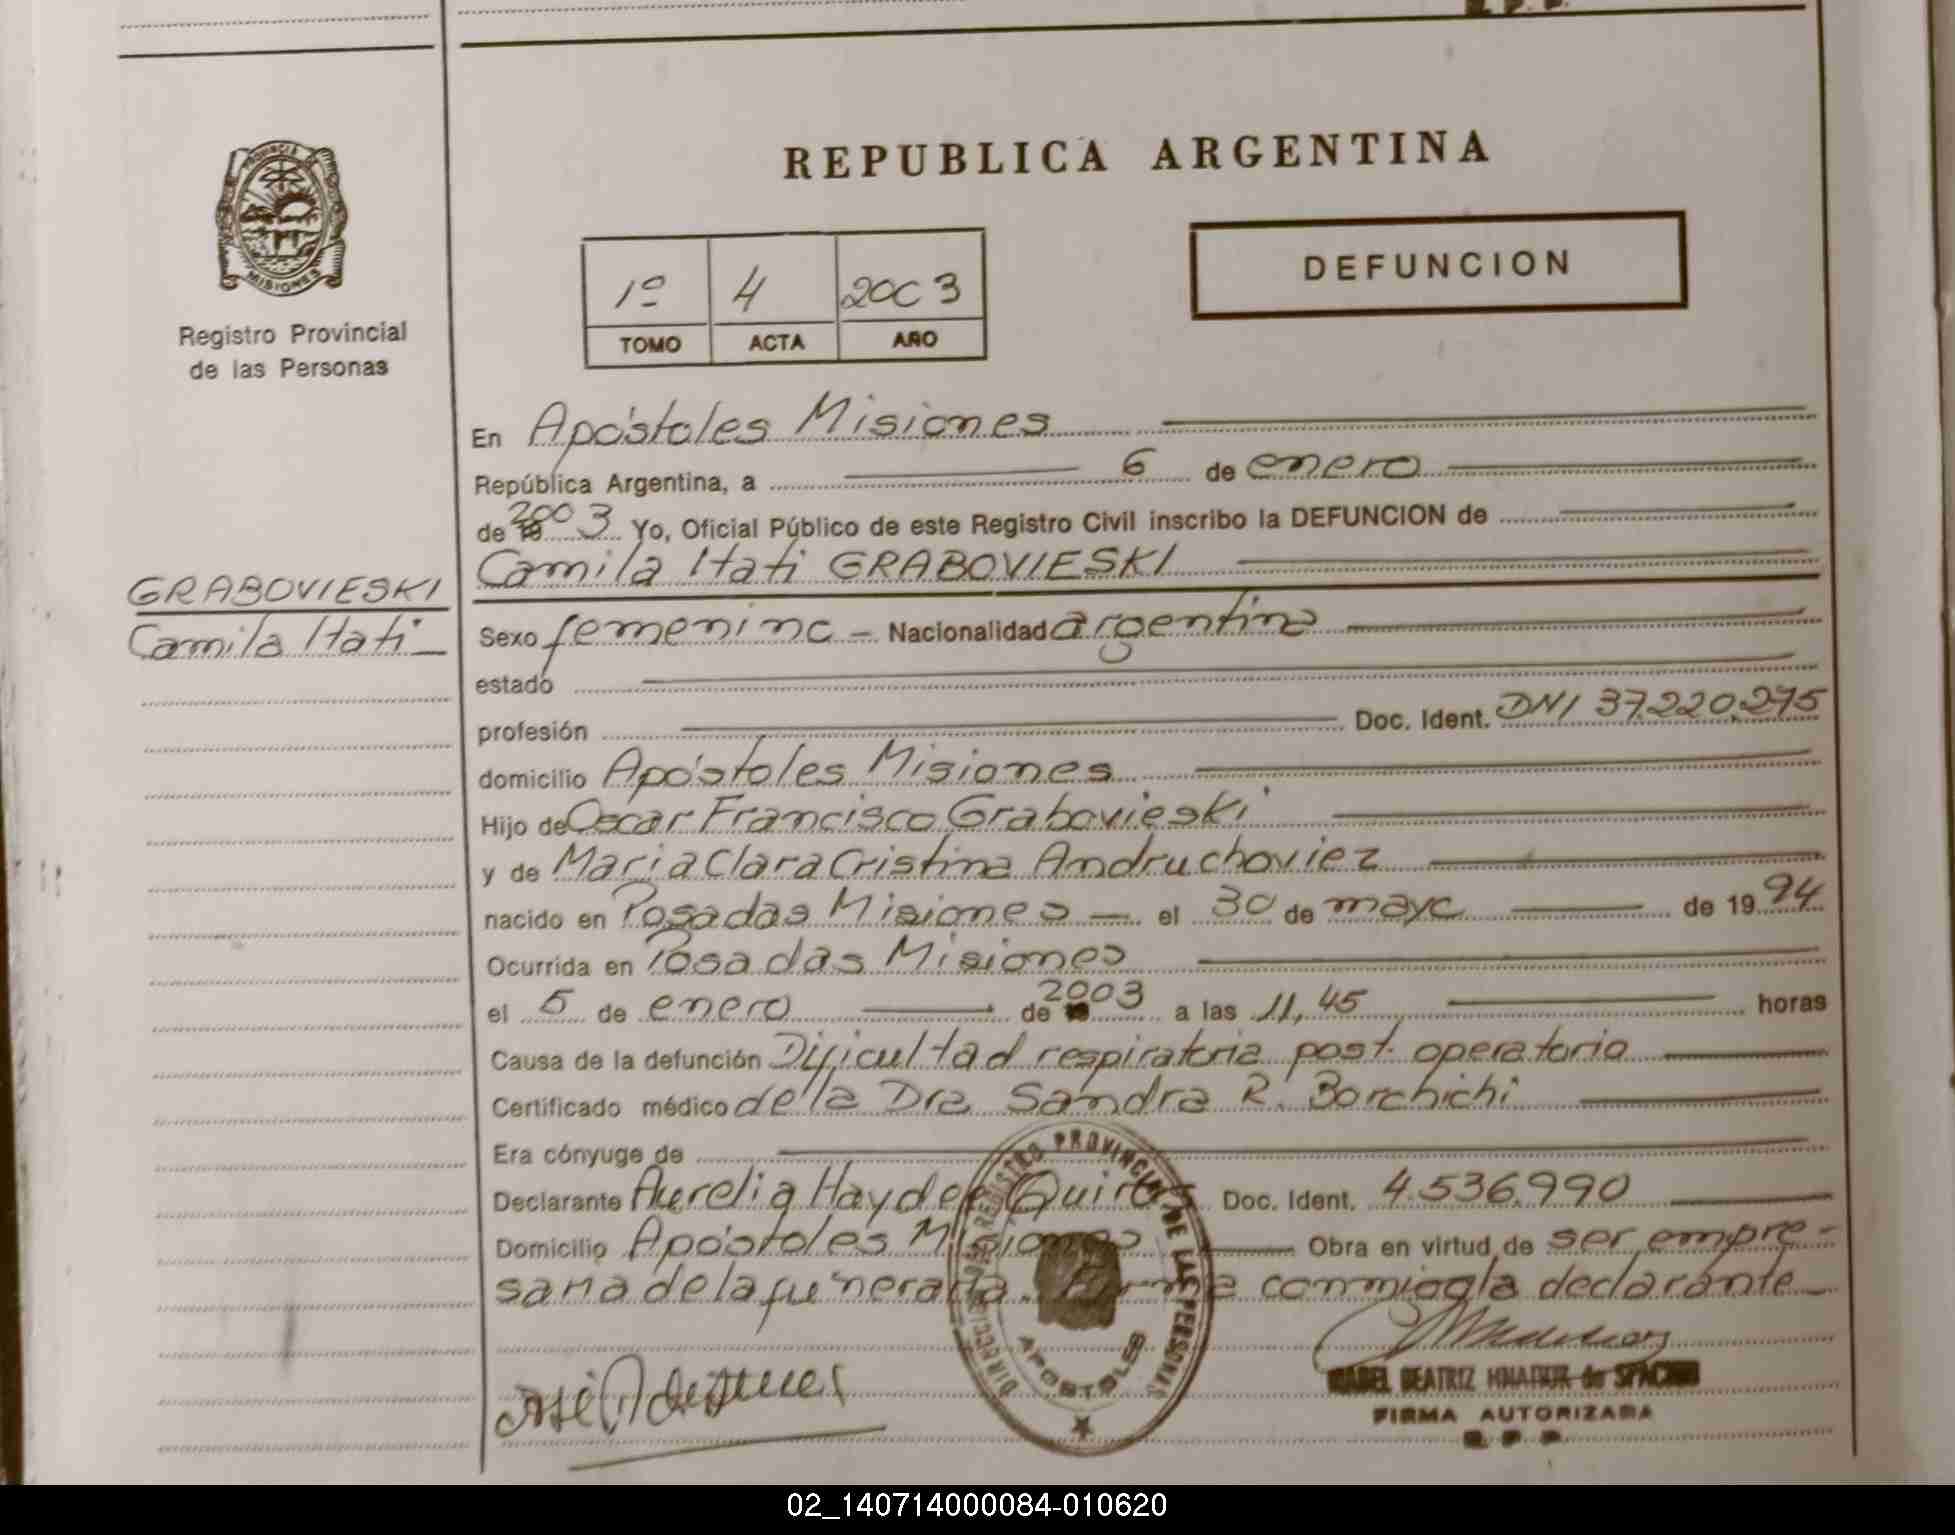 PROVINCIA DE
MISIONES
Registro Provincial
de las Personas
GRABOVIESKI
Camila Itati
REPUBLICA ARGENTINA
1º 4 2003
TOMO ACTA AÑO
DEFUNCION
En Apóstoles Misiones
República Argentina, a 6 de enero
de 2003 Yo, Oficial Público de este Registro Civil inscribo la DEFUNCION de
Camila Itati GRABOVIESKI
Sexo femenino - Nacionalidad argentina
estado
profesión Doc. Ident. DNI 37.220.275
domicilio Apóstoles Misiones
Hijo de Oscar Francisco Grabovieski
y de Maria Clara Cristina Andruchoviez
nacido en Posadas Misiones — el 30 de mayo de 1994
Ocurrida en Posadas Misiones
el 5 de enero de 2003 a las 11,45 horas
Causa de la defunción Dificultad respiratoria post. operatoria
Certificado médico de la Dra Sandra R. Borchichi
Era cónyuge de
Declarante Aurelia Haydee Doc. Ident. 4.536.990
Domicilio Apóstoles Misiones Obra en virtud de ser empre-
saria de la funeraria. Firma conmigo la declarante
DE LAS PERSONAS
APOSTOLES
BEATRIZ de
FIRMA AUTORIZADA
R. P. P.
02_140714000084-010620